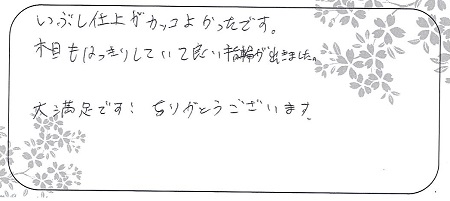 いぶし仕上がカッコよかったです。
木目もはっきりしていて良い指輪が出来ました。
大満足です! ありがとうございます。